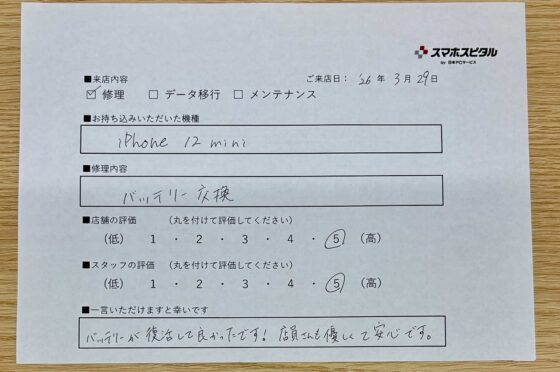 スマホスピタル
by 日本PCサービス
■来店内容
ご来店日： '26 年 3 月 29 日
☑ 修理 □ データ移行 □ メンテナンス
■お持ち込みいただいた機種
iPhone 12 mini
■修理内容
バッテリー交換
■店舗の評価 （丸を付けて評価してください）
（低） 1 ・ 2 ・ 3 ・ 4 ・ 5 （高）
■スタッフの評価 （丸を付けて評価してください）
（低） 1 ・ 2 ・ 3 ・ 4 ・ 5 （高）
■一言いただけますと幸いです
バッテリーが復活して良かったです！店員さんも優しくて安心です。